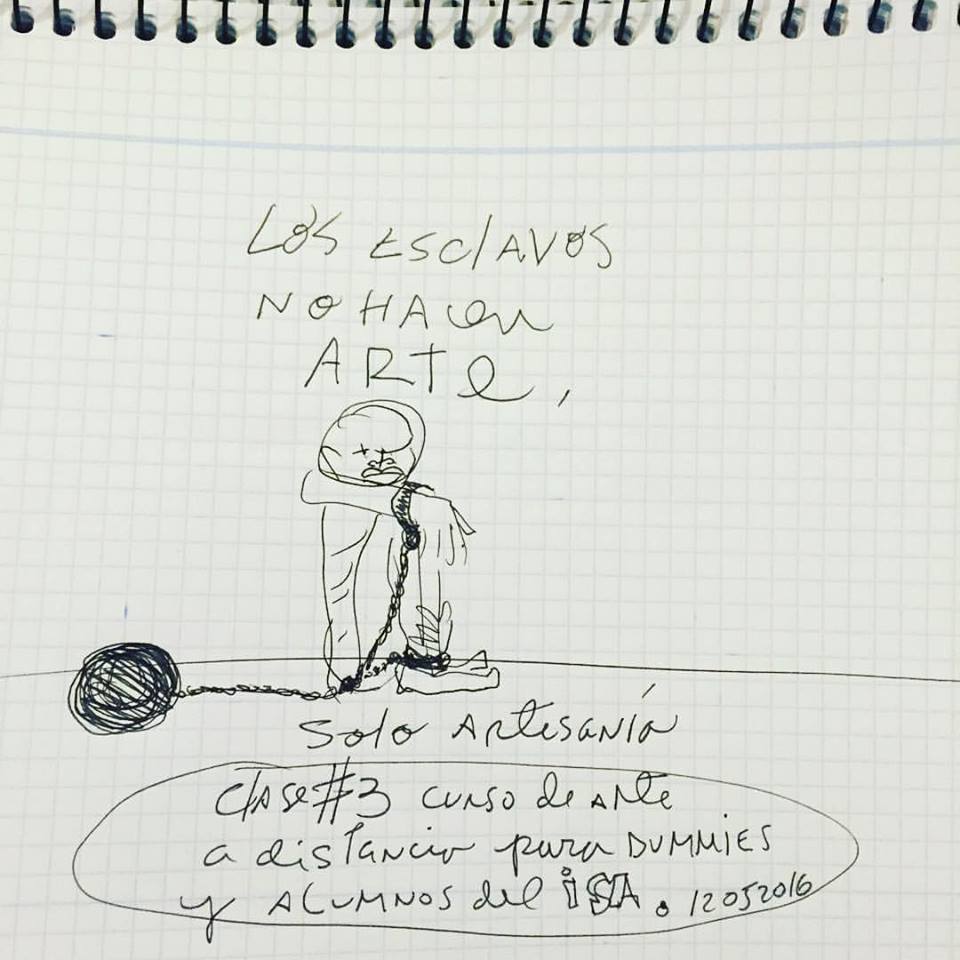 Los EsclAvos
No HAcen
ARTe,
Solo Artesanía
Clase #3 curso de arte
a distancia para DUMMIES
y ALUMNOS del iSA. 12052016